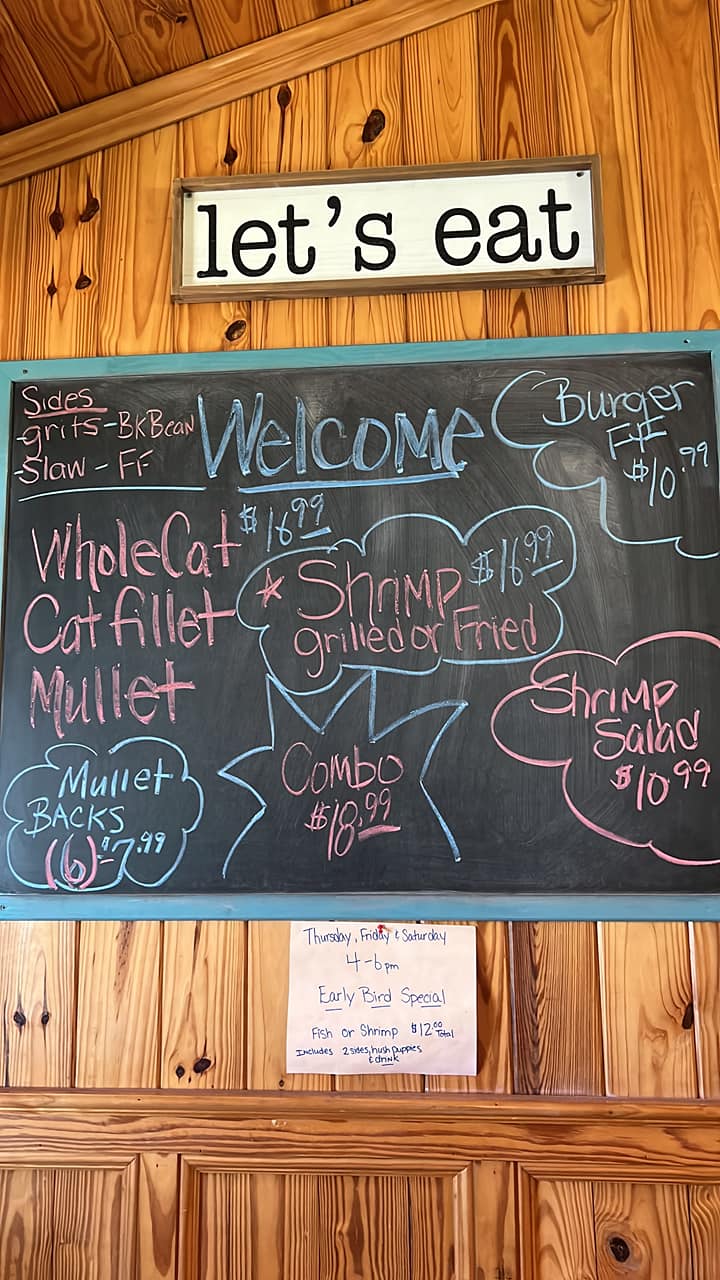 let's eat
Sides
grits - BKBean
Slaw - FF
Welcome
Burger
FF
$10.99
Whole Cat $16.99
Cat fillet
Mullet
Shrimp $16.99
grilled or Fried
Shrimp
Salad
$10.99
Combo
$18.99
Mullet
BACKS
(6) $7.99
Thursday, Friday & Saturday
4-6pm
Early Bird Special
Fish or Shrimp $12.00 Total
Includes 2 sides, hush puppies
& drink